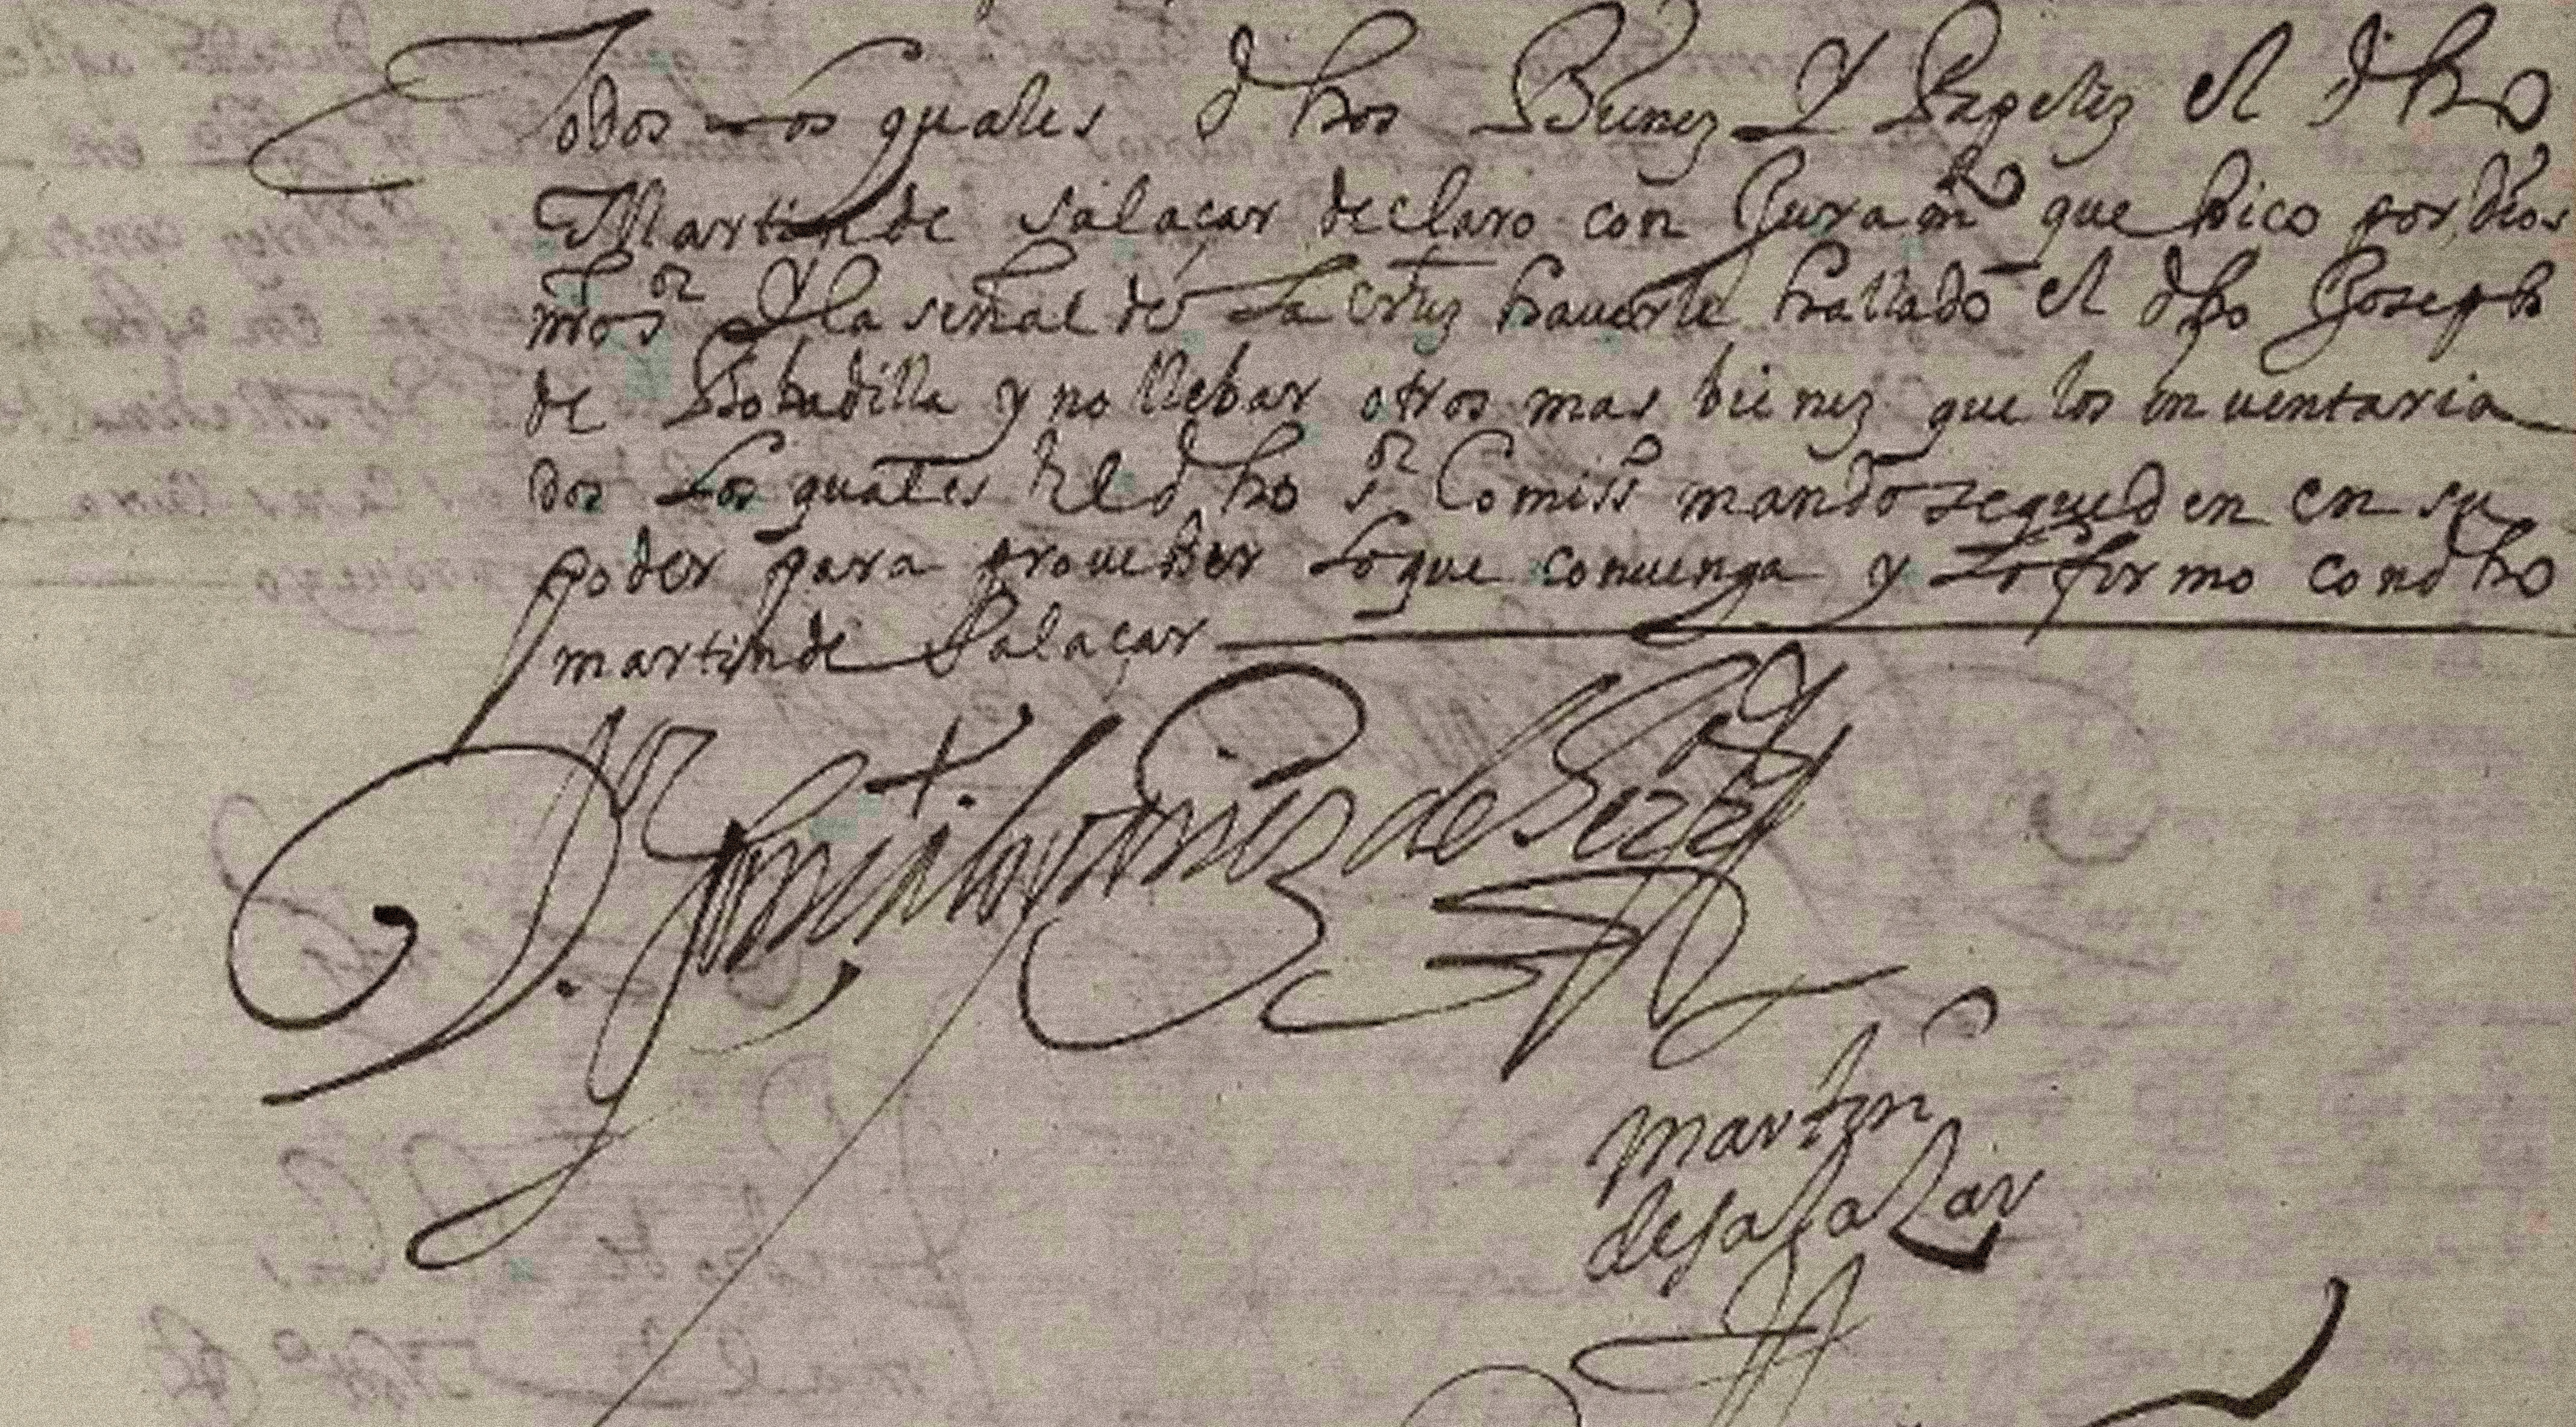 Todos los quales dhos Bienez Y Papelez el dho
Martin de salaçar declaro con Juramto que hico por dios
nro sor Y la señal de la cruz hauerle hallado el dho Joseph
de Bobadilla y no llebar otros mas bienez que los inuentaria
dos los quales El dho sor Comisso mando se queden en su
poder para proueher lo que conuenga y lo firmo con dho
martin de Salaçar
martin
de salaZar